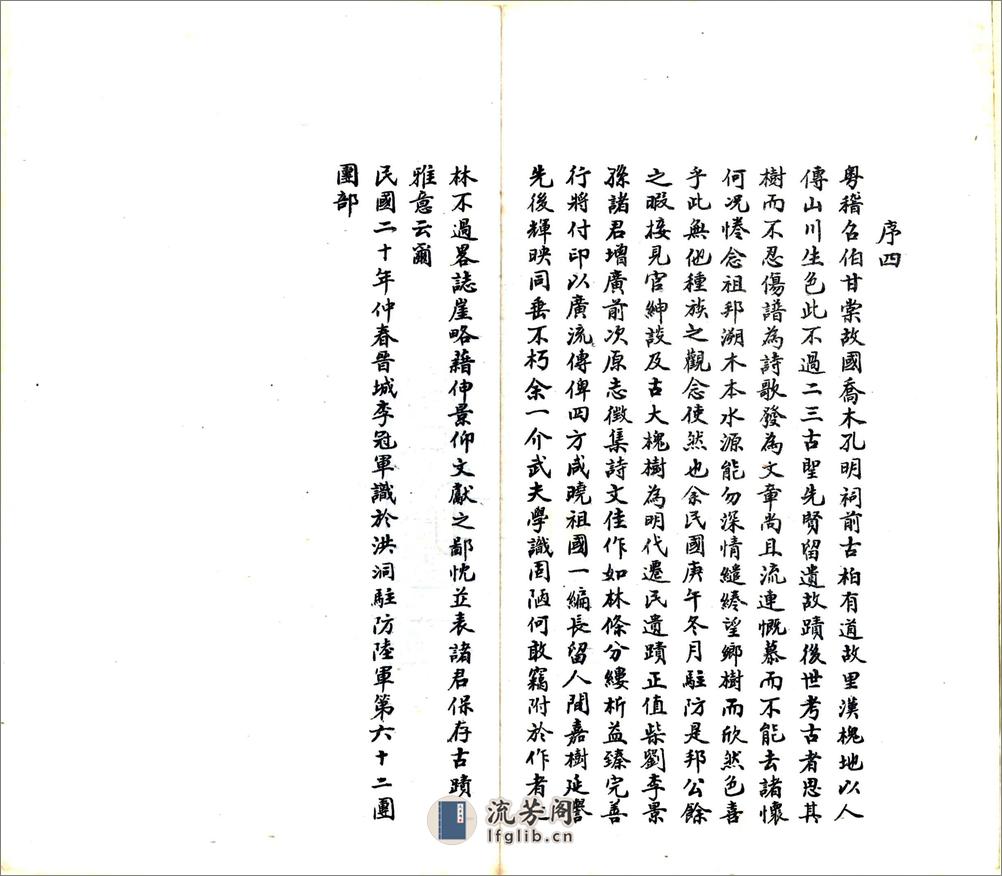 序四
粵稽召伯甘棠故國喬木孔明祠前古柏有道故里漢槐地以人
傳山川生色此不過二三古聖先賢留遺故蹟後世考古者思其
樹而不忍傷譜為詩歌發為文章尚且流連慨慕而不能去諸懷
何况惓念祖邦溯木本水源能勿深情繾綣望鄉樹而欣然色喜
乎此無他種族之觀念使然也余民國庚午冬月駐防是邦公餘
之暇接見官紳談及古大槐樹為明代遷民遺蹟正值柴劉李景
孫諸君增廣前次原志徵集詩文佳作如林條分縷析益臻完善
行將付印以廣流傳俾四方咸曉祖國一編長留人間嘉樹延譽
先後輝映同垂不朽余一介武夫學識固陋何敢竊附於作者之
林不過畧誌崖略藉伸景仰文獻之鄙忱並表諸君保存古蹟
雅意云爾
民國二十年仲春晉城李冠軍識於洪洞駐防陸軍第六十二團
團部
流芳阁
lfglib.cn